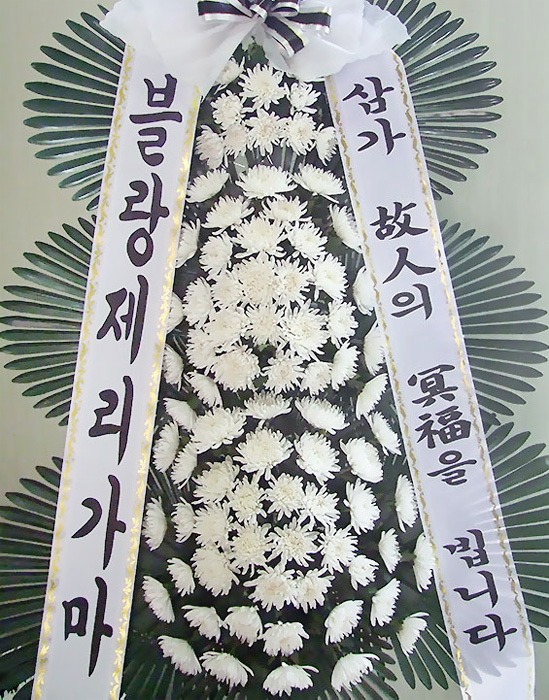 블랑제리가마
삼가 故人의 冥福을 빕니다